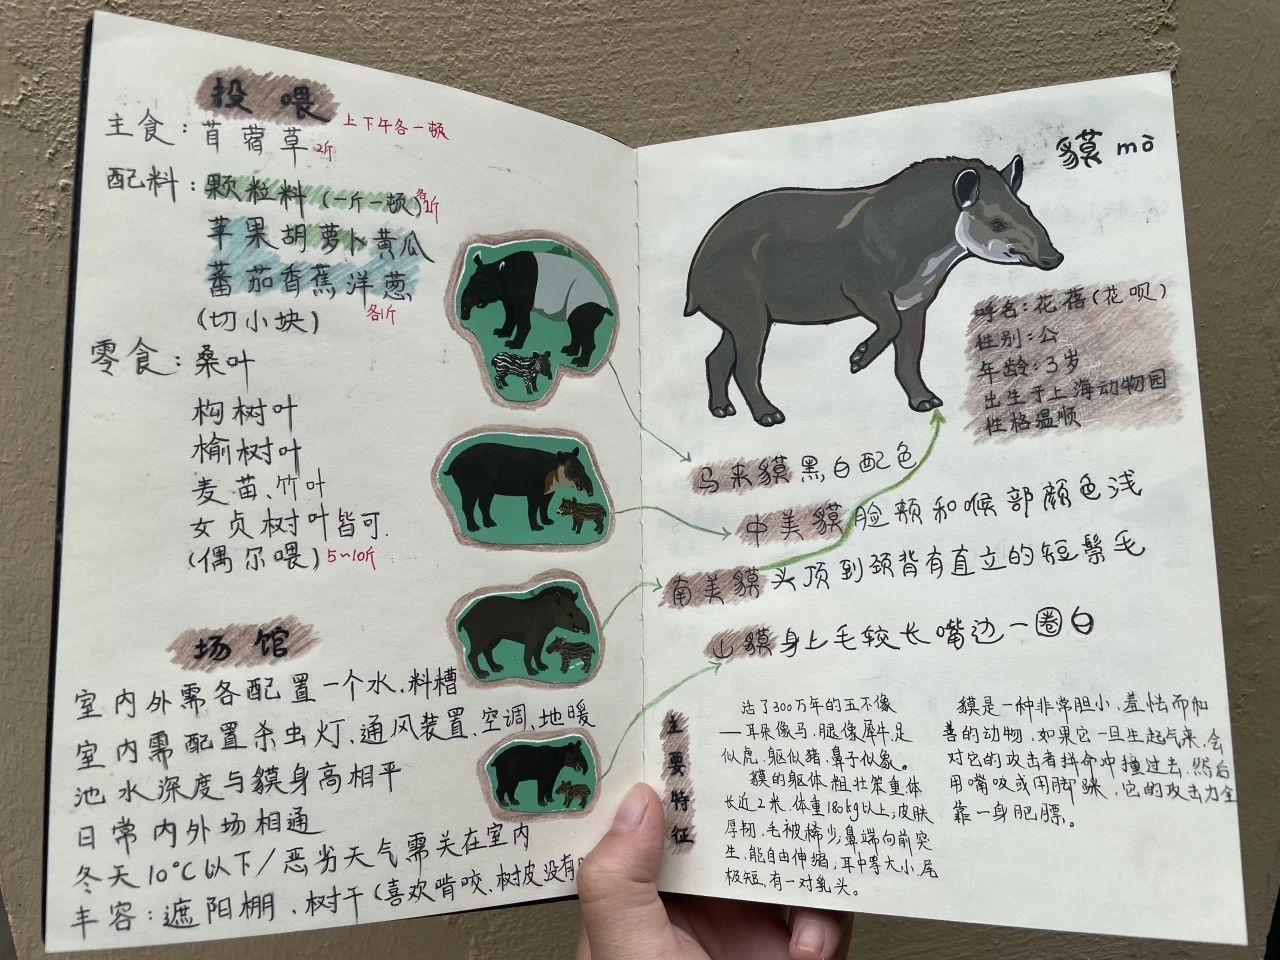 投喂
主食：苜蓿草 2斤
上下午各一顿
配料：颗粒料（一斤一顿）
苹果胡萝卜黄瓜
蕃茄香蕉洋葱
（切小块） 各1斤
零食：桑叶
构树叶
榆树叶
麦苗、竹叶
女贞树叶皆可.
（偶尔喂） 5~10斤
场馆
室内外需各配置一个水、料槽
室内需配置杀虫灯、通风装置、空调、地暖
池水深度与貘身高相平
日常内外场相通
冬天10℃以下/恶劣天气需关在室内
丰容：遮阳棚、树干（喜欢啃咬、树皮没有
貘 mò
呼名：花蓓（花呗）
性别：公
年龄：3岁
出生于上海动物园
性格温顺
马来貘黑白配色
中美貘脸颊和喉部颜色浅
南美貘头顶到颈背有直立的短鬃毛
山貘身上毛较长嘴边一圈白
主要特征
活了300万年的五不像
——耳朵像马、腿像犀牛、足
似虎、躯似猪、鼻子似象。
貘的躯体粗壮笨重体
长近2米、体重180kg以上；皮肤
厚韧、毛被稀少、鼻端向前突
生、能自由伸缩；耳中等大小、尾
极短、有一对乳头。
貘是一种非常胆小、羞怯而和
善的动物，如果它一旦生起气来，会
对它的攻击者拼命冲撞过去，然后
用嘴咬或用脚踩，它的攻击力全
靠一身肥膘。